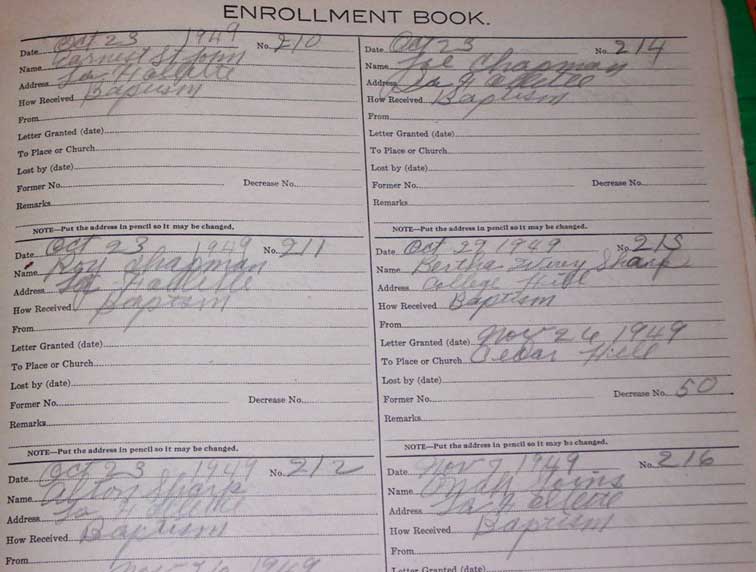 ENROLLMENT BOOK.
Date Oct 23 1949 No. 210
Name Earnest St John
Address La Follette
How Received Baptism
From
Letter Granted (date)
To Place or Church
Lost by (date)
Former No. Decrease No.
Remarks
NOTE—Put the address in pencil so it may be changed.
Date Oct 23 1949 No. 211
Name Roy Chapman
Address La Follette
How Received Baptism
From
Letter Granted (date)
To Place or Church
Lost by (date)
Former No. Decrease No.
Remarks
NOTE—Put the address in pencil so it may be changed.
Date Oct 23 1949 No. 212
Name Alton Sharp
Address La Follette
How Received Baptism
From
Nov 26 1949
Date Oct 23 No. 214
Name Joe Chapman
Address La Follette
How Received Baptism
From
Letter Granted (date)
To Place or Church
Lost by (date)
Former No. Decrease No.
Remarks
NOTE—Put the address in pencil so it may be changed.
Date Oct 29 1949 No. 215
Name Bertha Sharp
Address College Hill
How Received Baptism
From
Letter Granted (date) Nov 26 1949
To Place or Church Cedar Hill
Lost by (date)
Former No. Decrease No. 50
Remarks
NOTE—Put the address in pencil so it may be changed.
Date Nov 7 1949 No. 216
Name Goins
Address La Follette
How Received Baptism
From
Letter Granted (date)